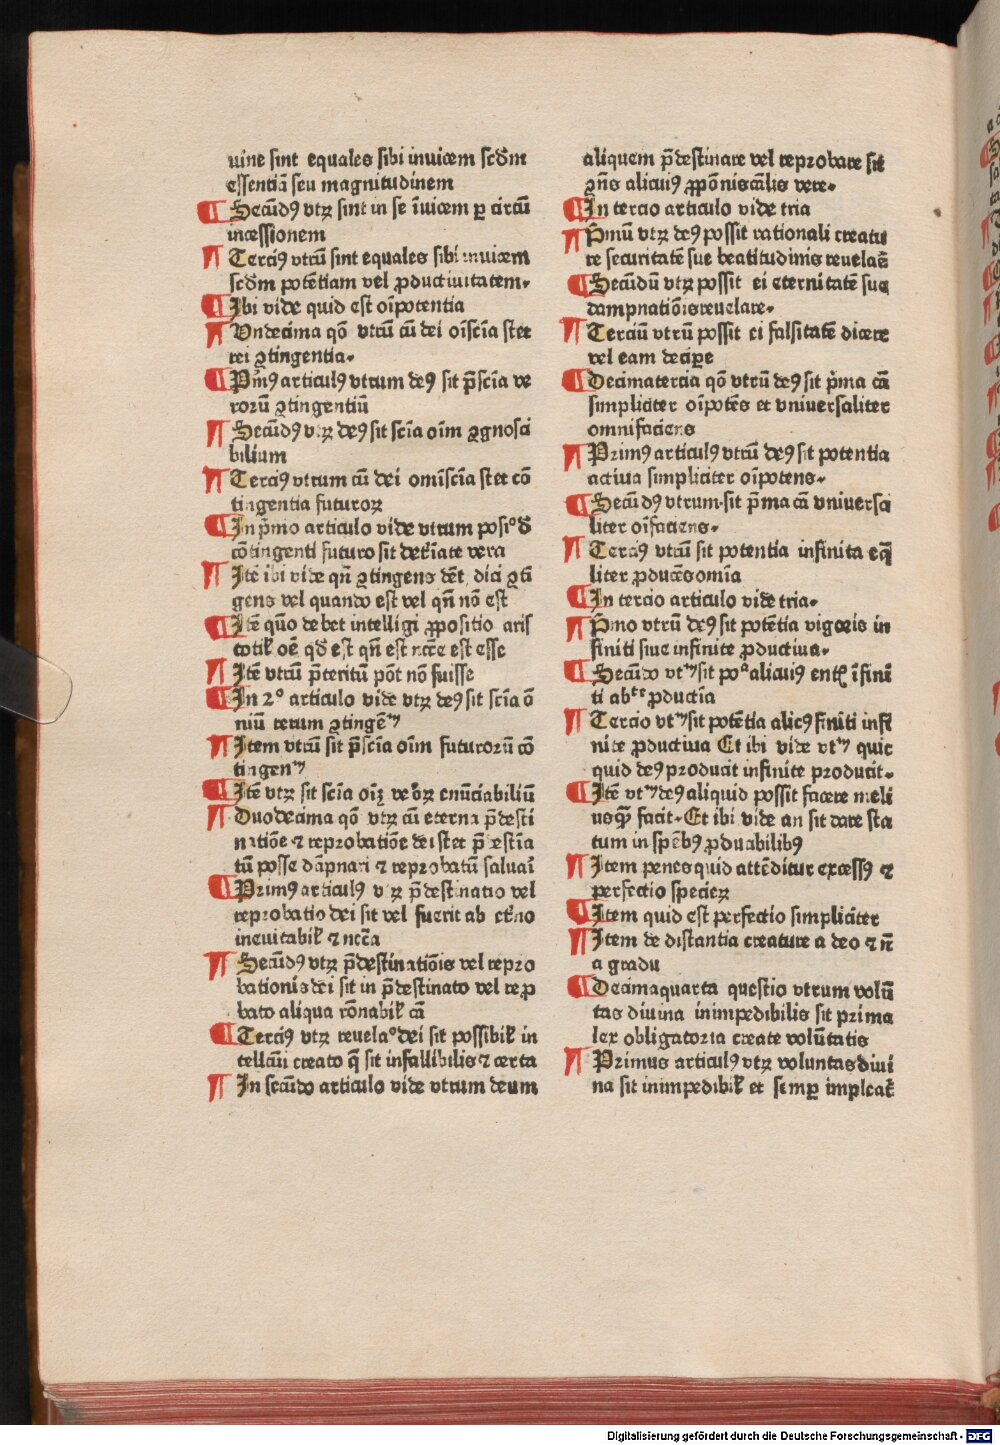 uine sint equales sibi inuicem scd̄m
essentiā seu magnitudinem
Secūdꝰ vtꝝ sint in se īuicem ꝑ circū
incessionem
Terciꝰ vtrū sint equales sibi inuicem
scd̄m potētiam vel ꝓductiuitatem.
Ibi vide quid est oīpotentia
Vndecima qō vtrū cū dei oīscīa stet
rei ꝯtingentia.
Pͥmꝰ articulꝰ vtrum deꝰ sit p̄scīa ve
rorū ꝯtingentiū
Secūdꝰ vtꝝ deꝰ sit scīa oīm ꝯgnosci
bilium
Terciꝰ vtrum cū dei omīscīa stet cō
tingentia futuroꝝ
In p̄mo articulo vide vtrum posiº d̄
cōtingenti futuro sit det̄iate vera
Itē ibi vide qn̄ ꝯtingens dēt dici ꝯtī
gens vel quando est vel qn̄ nō est
Itē quō debet intelligi ꝓpositio aris
totiꝉ oē qd̄ est qn̄ est ncc̄e est esse
Itē vtrū p̄teritū pōt nō fuisse
In 2º articulo vide vtꝝ deꝰ sit scīa ō
niū rerum ꝯtingē
Item vtrū sit p̄scīa oīm futurorū cō
tingen
Itē vtꝝ sit scīa oīꝫ veꝝ enūciabiliū
Duodecima qō vtꝝ cū eterna p̄desti
natiōe ⁊ reprobatiōe dei stet p̄destīa
tū posse dāpnari ⁊ reprobatū saluari
Primꝰ articulꝰ vtꝝ p̄destinatio vel
reprobatio dei sit vel fuerit ab et̄no
ineuitabiꝉ ⁊ ncc̄a
Secūdꝰ vtꝝ p̄destinatiōis vel repro
bationis dei sit in p̄destinato vel reꝓ
bato aliqua rōnabiꝉ cā
Terciꝰ vtꝝ reuelaº dei sit possibiꝉ in
tellcūi creato q̄ sit infallibilis ⁊ certa
In scūdo articulo vide vtrum deum
aliquem p̄destinare vel reprobare sit
ꝯn̄s alicuiꝰ ꝓpōnis cālis vere.
In tercio articulo vide tria
P̄mū vtꝝ deꝰ possit rationali creatu
re securitatē sue beatitudinis reuelar̄
Secūdū vtꝝ possit ei eternitatē sue
dampnatiōis reuelare.
Terciū vtrū possit ei falsitatē dicere
vel eam decipe
Decimatercia qō vtrū deꝰ sit pͥma cā
simpliciter oīpotēs et vniuersaliter
omnifaciens
Primꝰ articulꝰ vtrū deꝰ sit potentia
actiua simpliciter oīpotens.
Secūdꝰ vtrum sit p̄ma cā vniuersa
liter oīfaciens.
Terciꝰ vtrū sit potentia infinita eq̄
liter ꝓducēs omīa
In tercio articulo vide tria.
P̄mo vtrū deꝰ sit potētia vigoris in
finiti siue infinite ꝓductiua.
Secūdo vt sit poª alicuiꝰ entꝭ īfini
ti ab ꝓductīa
Tercio vt sit potētia alicꝰ finiti infi
nite ꝓductiua Et ibi vide vt quic
quid deꝰ producit infinite producit.
Itē vt deꝰ aliquid possit facere meli
us q̄ facit. Et ibi vide an sit dare sta
tum in spēbꝰ ꝓduabilibꝰ
Item penes quid attēditur excessꝰ ⁊
perfectio specieꝝ
Item quid est perfectio simpliciter
Item de distantia creature a deo ⁊ n̄
a gradu
Decimaquarta questio vtrum volū
tas diuina inimpedibilis sit prima
lex obligatoria create volūtatis
Primus articulꝰ vtꝝ voluntas diui
na sit inimpedibiꝉ et semꝑ impleat̄
Digitalisierung gefördert durch die Deutsche Forschungsgemeinschaft - DFG